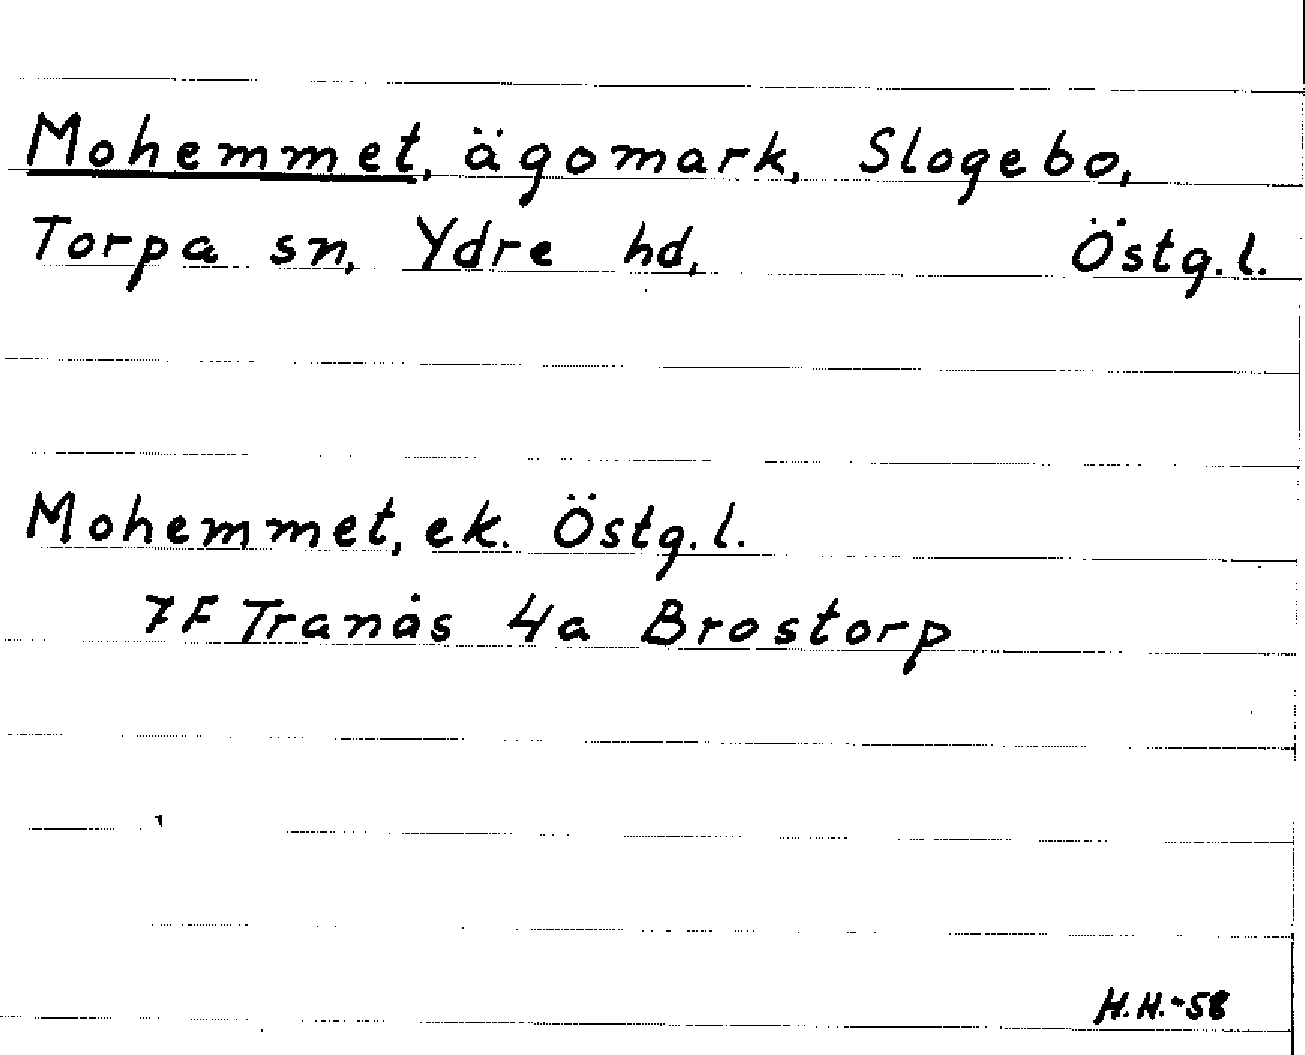 Mohemmet, ägomark, Slogebo,
Torpa sn, Ydre hd, Östg.l.
Mohemmet, ek. Östg.l.
7F Tranås 4a Brostorp
H.H.-58